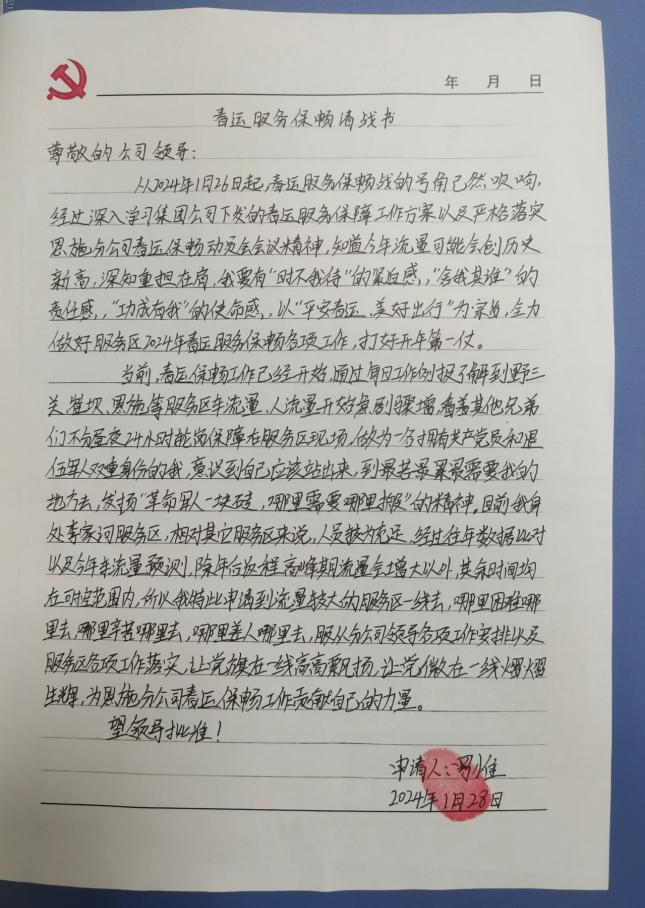 年 月 日
春运服务保畅请战书
尊敬的公司领导:
从2024年1月26日起,春运服务保畅战的号角已然吹响,
经过深入学习集团公司下发的春运服务保障工作方案以及严格落实
恩施分公司春运保畅动员会会议精神,知道今年流量可能会创历史
新高,深知重担在肩,我要有“时不我待”的紧迫感,,“舍我其谁”的
责任感,,“功成有我”的使命感,,以“平安春运、美好出行”为宗旨,全力
做好服务区2024年春运服务保畅各项工作,打好开年第一仗。
当前,春运保畅工作已经开始,通过每日工作例报了解到野三
关、崔坝、恩施等服务区车流量、人流量开始急剧骤增,看着其他兄弟
们不分昼夜24小时轮岗保障在服务区现场,做为一名拥有共产党员和退
伍军人双重身份的我,意识到自己应该站出来,到最苦最累最需要我的
地方去,发扬“革命军人一块砖,哪里需要哪里搬”的精神。目前我身
处李家河服务区,相对其它服务区来说,人员较为充足,经过往年数据比对
以及今年车流量预测,除年后返程高峰期流量会增大以外,其余时间均
在可控范围内,所以我特此申请到流量较大的服务区一线去,哪里困难哪
里去,哪里辛苦哪里去,哪里差人哪里去,服从分公司领导各项工作安排以及
服务区各项工作落实,让党旗在一线高高飘扬,让党徽在一线熠熠
生辉,为恩施分公司春运保畅工作贡献自己的力量。
望领导批准!
申请人:
2024年1月28日